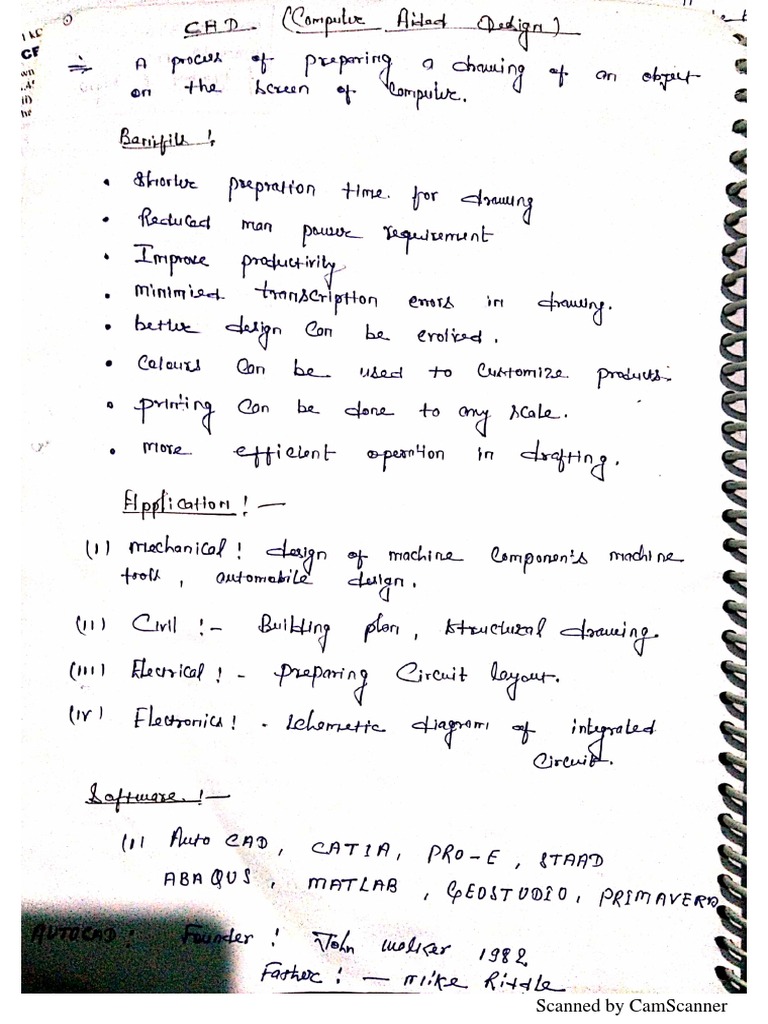 CAD (Computer Aided Design)
A process of preparing a drawing of an object
on the screen of computer.
Benifits :
• Shorter prepration time for drawing
• Reduced man power requirement
• Improve productivity
• minimised transcription errors in drawing.
• better design can be evolved.
• Colours can be used to customize products.
• printing can be done to any scale.
• more efficient operation in drafting.
Application : —
(i) Mechanical : design of machine component's machine
tools, automobile design.
(ii) Civil : - Building plan, structural drawing.
(iii) Electrical : - preparing Circuit layout.
(iv) Electronics : - schemetic diagram of integrated
Circuit.
Software : —
(i) Auto CAD, CATIA, PRO-E, STAAD
ABAQUS, MATLAB, GEOSTUDIO, PRIMAVERA
AUTOCAD : Founder : John walker 1982
Father : — mike Riddle
Scanned by CamScanner